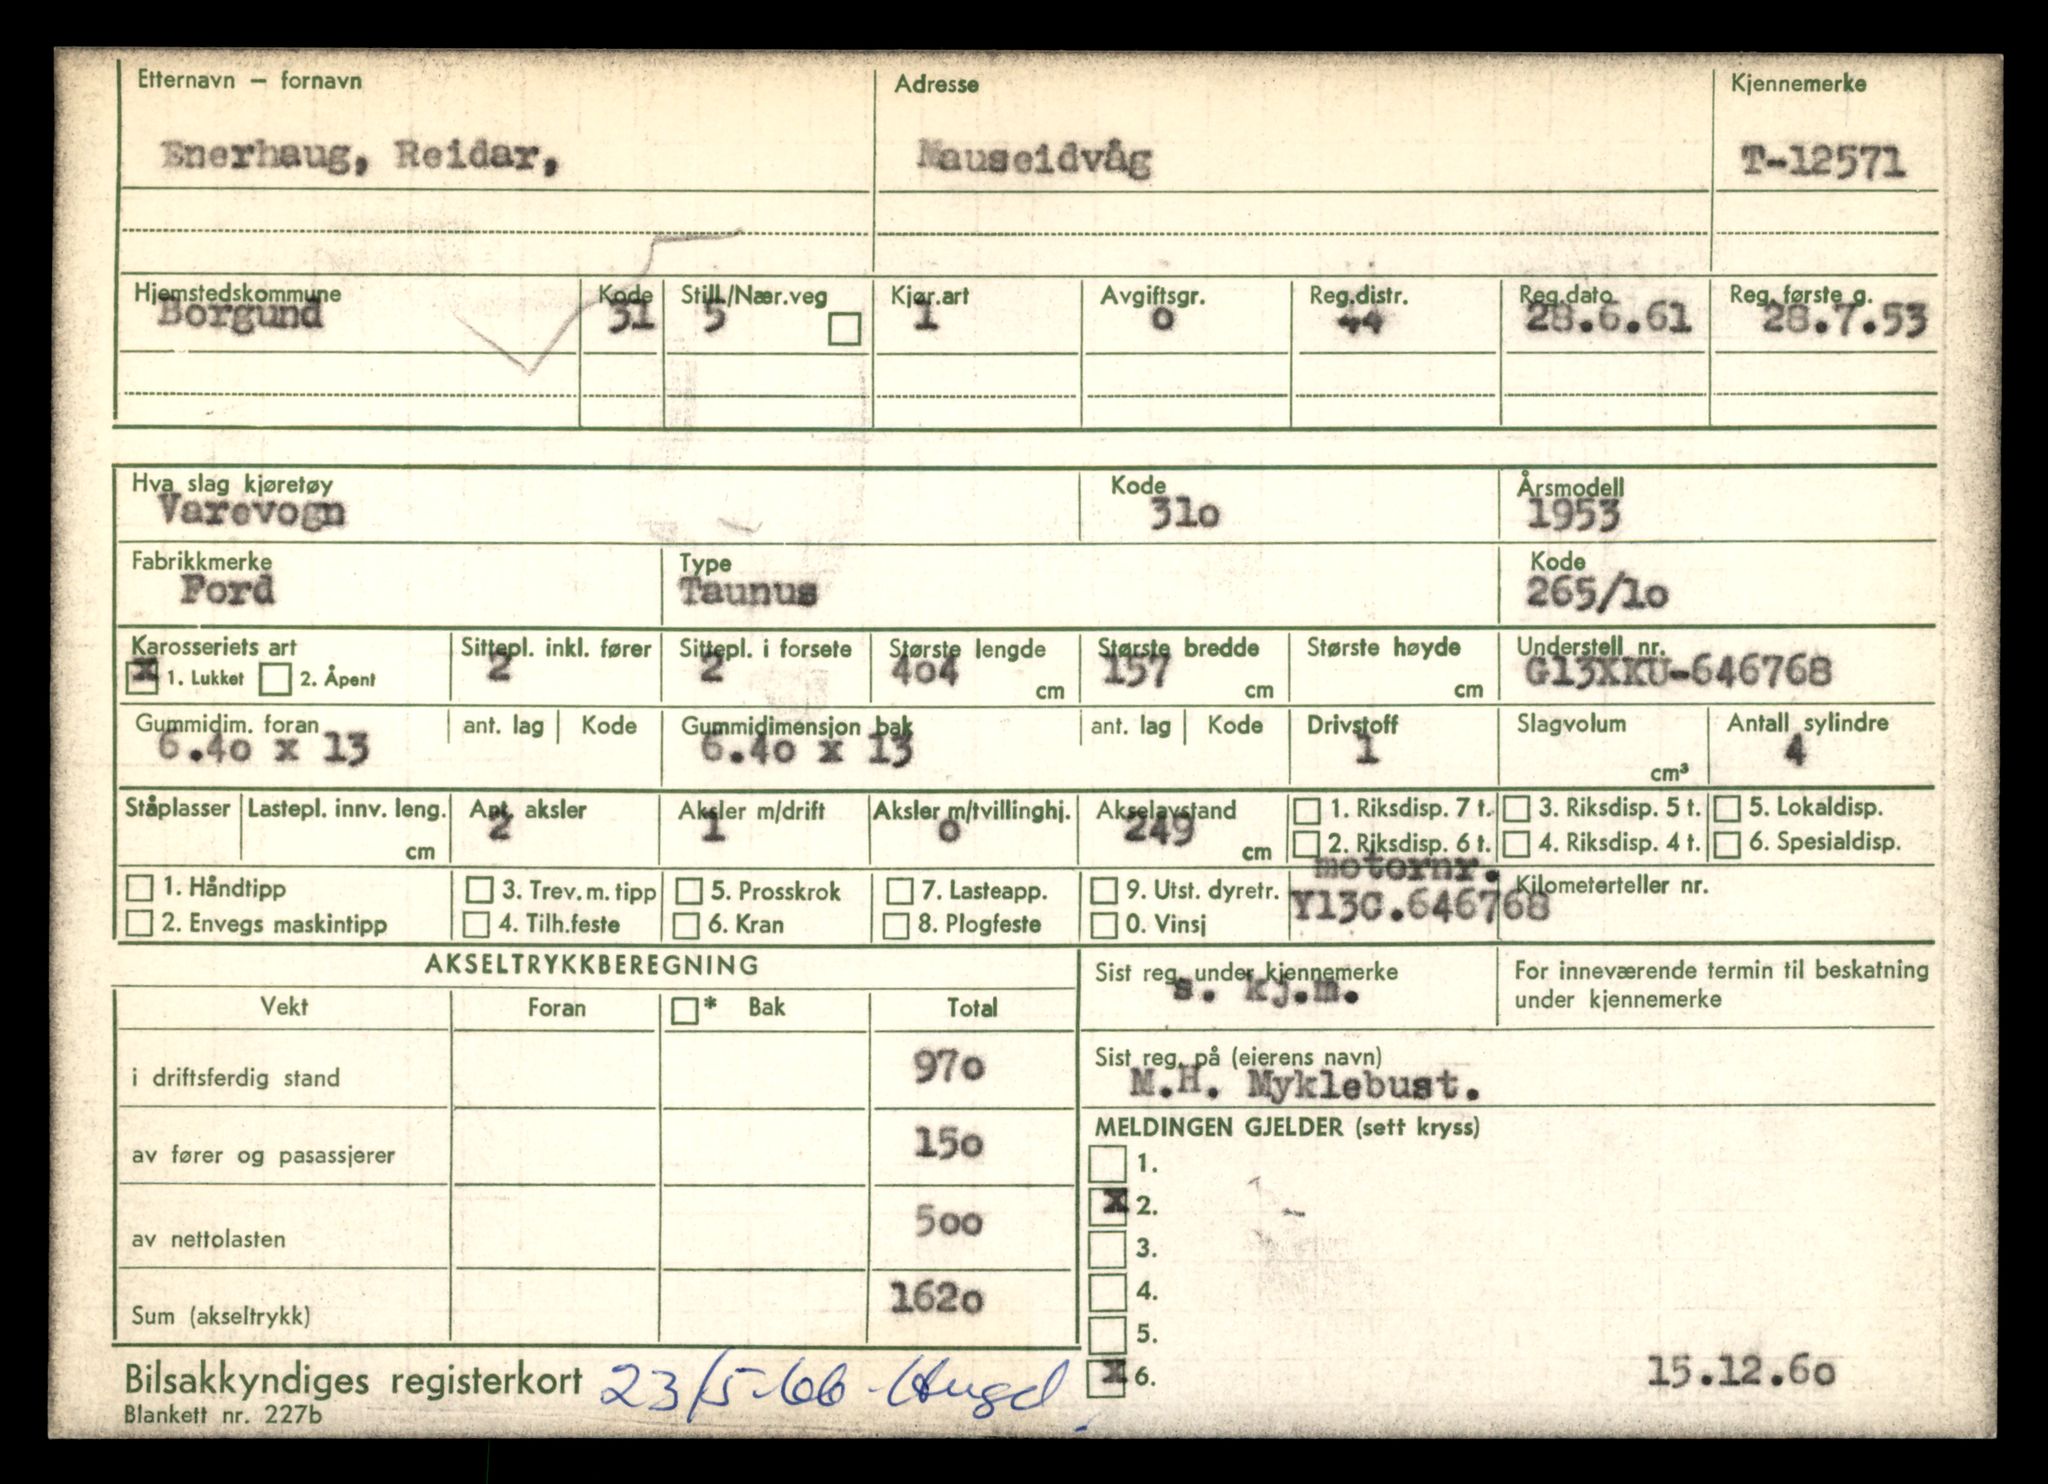 Etternavn – fornavn Adresse Kjennemerke
Enerhaug, Reidar, Mauseidvåg T-12571
Hjemstedskommune Kode Still./Nær.veg Kjør.art Avgiftsgr. Reg.distr. Reg.dato Reg. første g.
Borgund 31 5 1 o 44 28.6.61 28.7.53
Hva slag kjøretøy Kode Årsmodell
Varevogn 31o 1953
Fabrikkmerke Type Kode
Ford Taunus 265/1o
Karosseriets art Sittepl. inkl. fører Sittepl. i forsete Største lengde Største bredde Største høyde Understell nr.
x 1. Lukket 2. Åpent 2 2 4o4 cm 157 cm cm G13XKU-646768
Gummidim. foran ant. lag Kode Gummidimensjon bak ant. lag Kode Drivstoff Slagvolum Antall sylindre
6.4o x 13 6.4o x 13 1 cm³ 4
Ståplasser Lastepl. innv. leng. Ant. aksler Aksler m/drift Aksler m/tvillinghj. Akselavstand 1. Riksdisp. 7 t. 3. Riksdisp. 5 t. 5. Lokaldisp.
cm 2 1 o 249 cm 2. Riksdisp. 6 t. 4. Riksdisp. 4 t. 6. Spesialdisp.
motornr.
1. Håndtipp 3. Trev. m. tipp 5. Prosskrok 7. Lasteapp. 9. Utst. dyretr. Y13C.646768 Kilometerteller nr.
2. Envegs maskintipp 4. Tilh.feste 6. Kran 8. Plogfeste 0. Vinsj
AKSELTRYKKBEREGNING Sist reg. under kjennemerke For inneværende termin til beskatning
s. kj.m. under kjennemerke
Vekt Foran * Bak Total
i driftsferdig stand 97o
Sist reg. på (eierens navn)
M.H. Myklebust.
av fører og pasassjerer 15o
MELDINGEN GJELDER (sett kryss)
1.
x 2.
av nettolasten 5oo
3.
4.
Sum (akseltrykk) 162o
5.
x 6. 15.12.6o
Bilsakkyndiges registerkort 23/5-66
Blankett nr. 227b